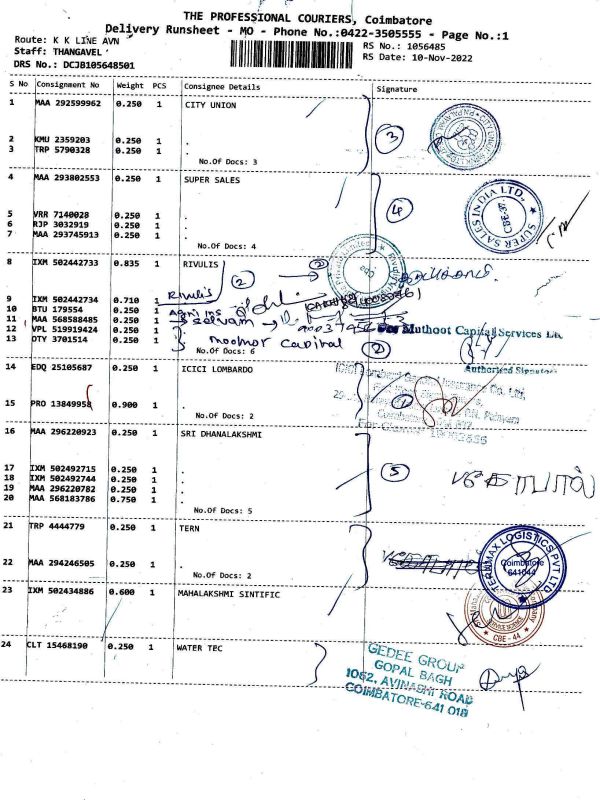 THE PROFESSIONAL COURIERS, Coimbatore
Delivery Runsheet - MO - Phone No.:0422-3505555 - Page No.:1
Route: K K LINE AVN
RS No.: 1056485
Staff: THANGAVEL
RS Date: 10-Nov-2022
DRS No.: DCJB105648501
S No Consignment No Weight PCS Consignee Details Signature
1 MAA 292599962 0.250 1 CITY UNION
3
2 KMU 2359203 0.250 1 .
3 TRP 5790328 0.250 1 .
No.Of Docs: 3
4 MAA 293802553 0.250 1 SUPER SALES
SUPER SALES INDIA LTD.,
CBE-37
4
5 VRR 7140028 0.250 1 .
6 RJP 3032919 0.250 1 .
7 MAA 293745913 0.250 1 .
No.Of Docs: 4
8 IXM 502442733 0.835 1 RIVULIS
2
Rivulis
9 IXM 502442734 0.710 1
10 BTU 179554 0.250 1
Agri ins
11 MAA 568588485 0.250 1
Selvam
12 VPL 519919424 0.250 1
For Muthoot Capital Services Ltd
13 DTY 3701514 0.250 1
Moothot capital
No.Of Docs: 6
2
Authorised Signatory
14 EDQ 25105687 0.250 1 ICICI LOMBARDO
1
15 PRO 13849958 0.900 1 .
No.Of Docs: 2
16 MAA 296220923 0.250 1 SRI DHANALAKSHMI
5
17 IXM 502492715 0.250 1 .
18 IXM 502492744 0.250 1 .
19 MAA 296220782 0.250 1 .
20 MAA 568183786 0.750 1 .
No.Of Docs: 5
21 TRP 4444779 0.250 1 TERN
TERNMAX LOGISTICS PVT LTD
Coimbatore
641044
22 MAA 294246505 0.250 1 .
No.Of Docs: 2
23 IXM 502434886 0.600 1 MAHALAKSHMI SINTIFIC
CBE - 44
24 CLT 15468190 0.250 1 WATER TEC
GEDEE GROUP
GOPAL BAGH
1062, AVINASHI ROAD
COIMBATORE-641 018